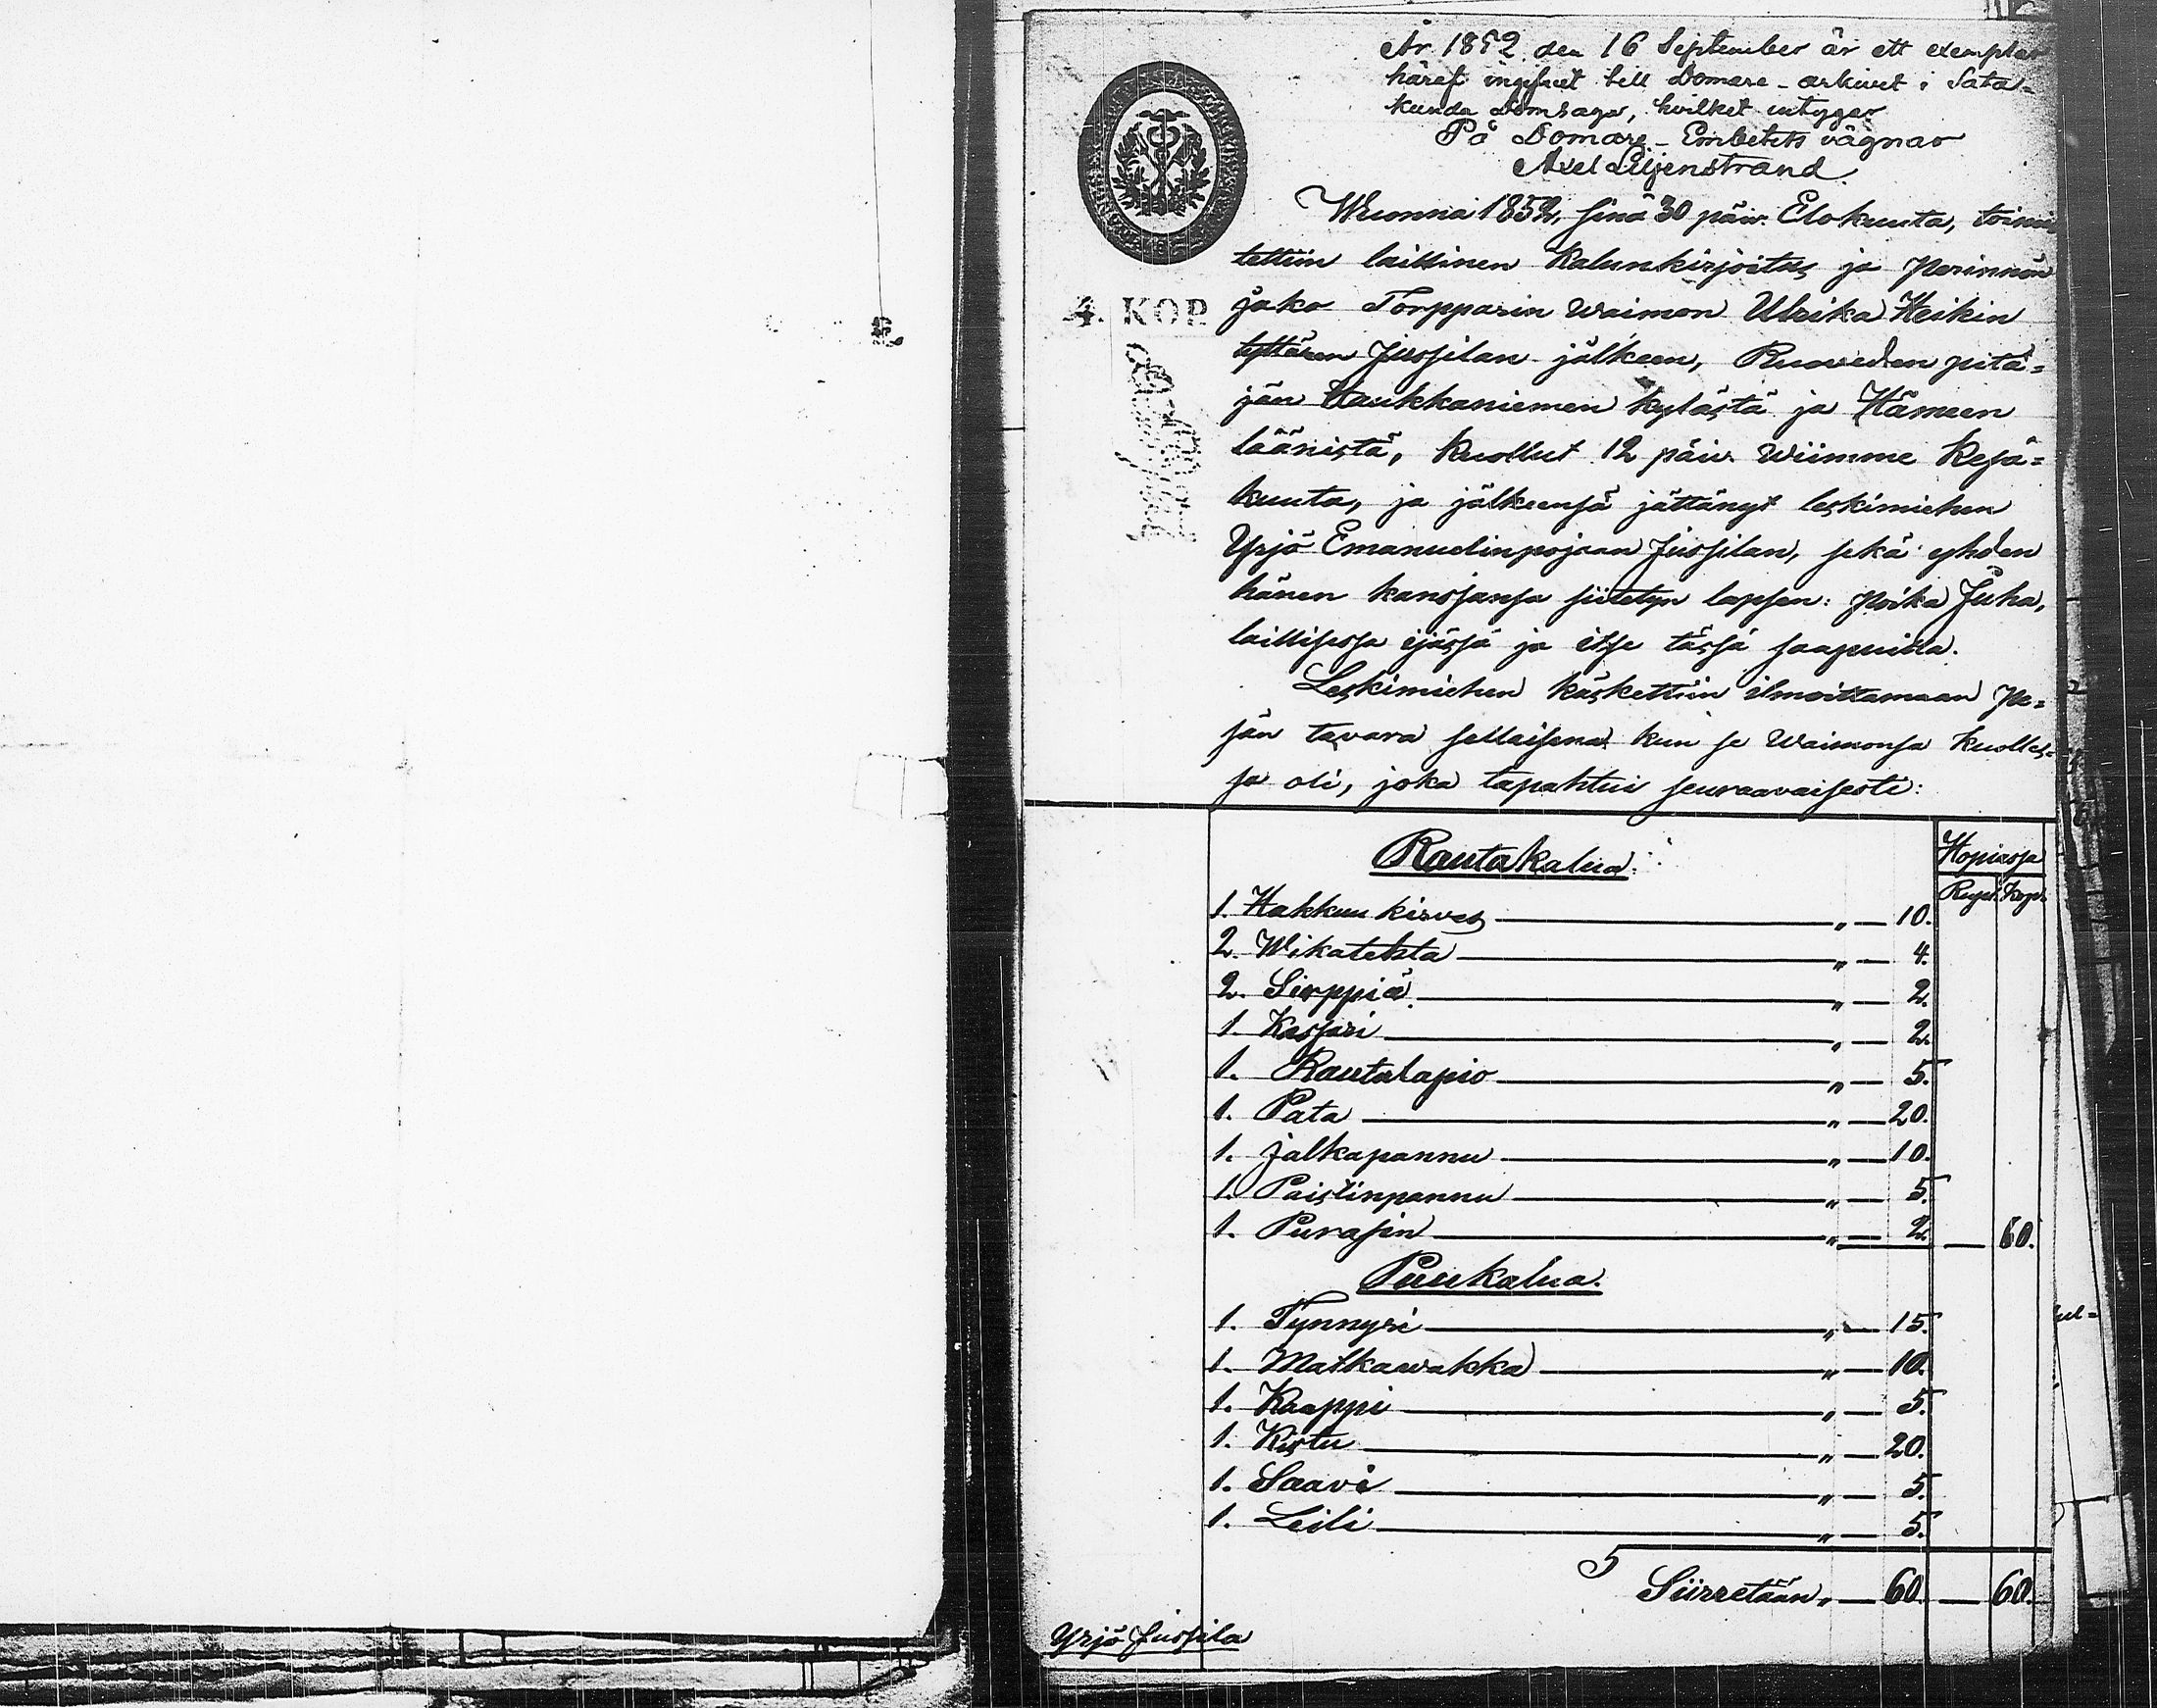 År 1852 den 16 September är ett exemplar
häraf ingifvet till Domare-arkivet i Sata-
kunda Domsaga, hvilket intygar
På Domare-Embetets vägnar
Axel Liljenstrand.
4. KOP.
Wuonna 1852, sinä 30 päiv. Elokuuta, toimi
tettiin laillinen Kalunkirjoitus ja perinnön
jako Torpparin waimon Ulrika Heikin
tyttären Jussilan jälkeen, Ruoveden pitä=
jän Haukkaniemen kylästä ja Hämeen
läänistä, kuollut 12 päiv. wiimme Kesä=
kuuta, ja jälkeensä jättänyt leskimiehen
Yrjö Emanuelinpojaan Jussilan, sekä yhden
hänen kanssansa siitetyn lapsen: poika Juha,
laillisessa ijässä ja itse tässä saapuilla.
Leskimiehen käskettiin ilmoittamaan pe=
sän tavara sellaisena kun se Waimonsa kuolles=
sa oli, joka tapahtui seuraavaisesti:
Rautakalua.
Hopiassa
Rupl. Kop.
1. Hakkuu kirves „ — 10.
2. Wikatehta „ — 4.
2. Sirppiä „ — 2.
1. Kassari „ — 2.
1. Rautalapio „ — 5.
1. Pata „ — 20.
1. Jalkapannu „ — 10.
1. Paistinpannu „ — 5.
1. Purasin „ — 2. — 60.
Puukalua.
1. Tynnyri „ — 15.
1. Matkawakka „ — 10.
1. Kaappi „ — 5.
1. Kistu „ — 20.
1. Saavi „ — 5.
1. Leili „ — 5.
Siirretään „ — 60. — 60.
Yrjö Jussila